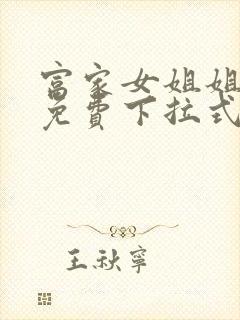 富家女姐姐
免費下拉式
王秋寧